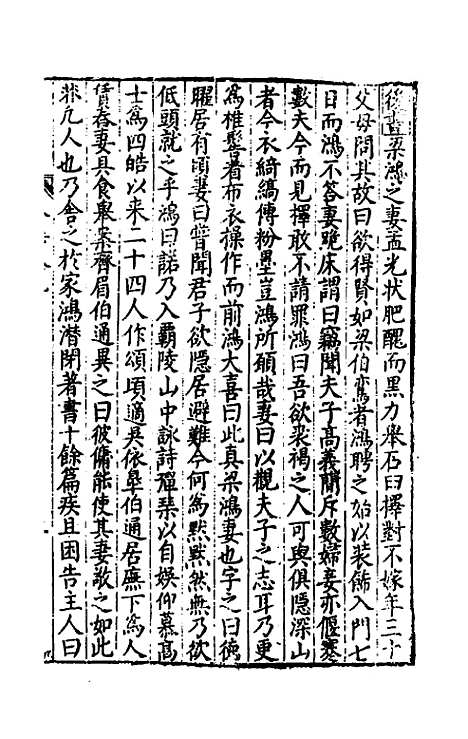 後漢梁鴻之妻孟光状肥醜而黑力舉石臼擇對不嫁年三十
父母問其故曰欲得賢如梁伯鸞者鴻聘之始以裝飾入門七
日而鴻不答妻跪床謂曰竊聞夫子高義簡斥數婦妾亦偃蹇
數夫今而見擇敢不請罪鴻曰吾欲裘褐之人可與俱隱深山
者今衣綺縞傅粉墨豈鴻所願哉妻曰以觀夫子之志耳乃更
爲椎髻着布衣操作而前鴻大喜曰此真梁鴻妻也字之曰德
曜居有頃妻曰嘗聞君子欲隱居避難今何爲黙黙然無乃欲
低頭就之乎鴻曰諾乃入霸陵山中詠詩彈琴以自娱仰慕高
士爲四皓以来二十四人作頌頃適吳依皐伯通居廡下爲人
賃舂妻具食舉案齊眉伯通異之曰彼傭能使其妻敬之如此
非凡人也乃舍之於家鴻潜閉著書十餘篇疾且困告主人曰